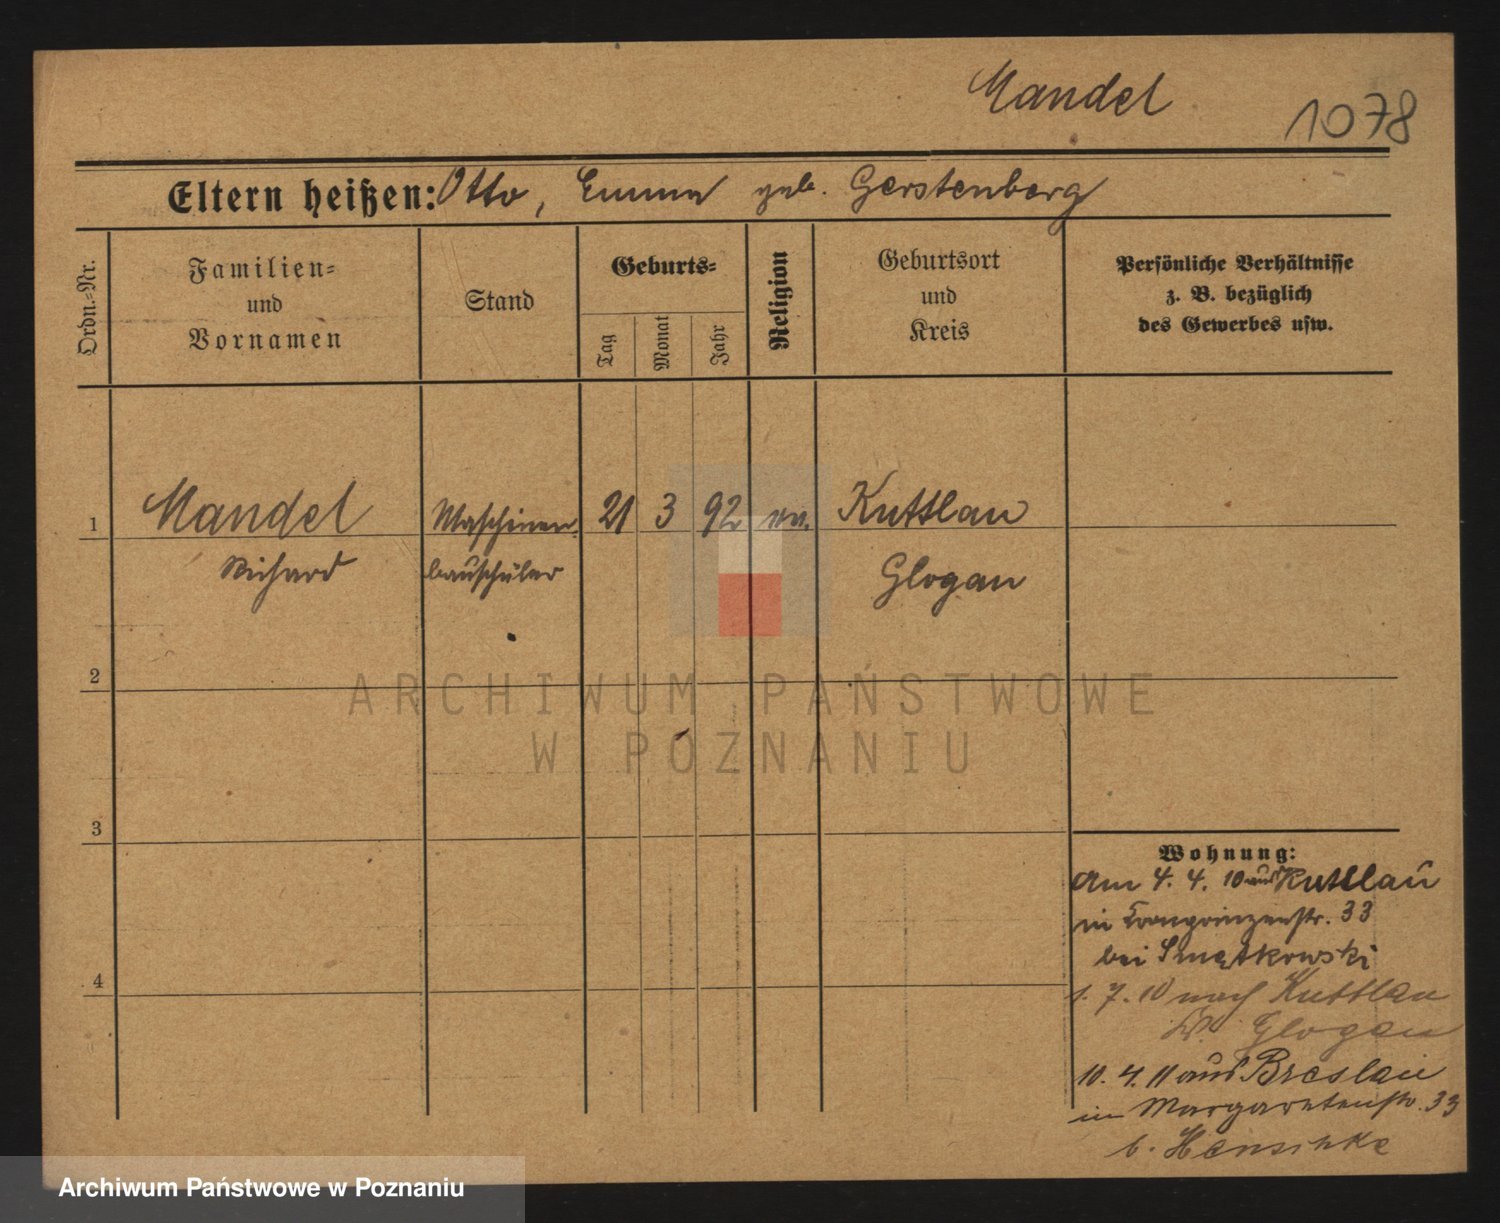 Mandel
1078
Eltern heißen: Otto, Emma geb. Gerstenberg
Ordn.-Nr.
Familien-
und
Vornamen
Stand
Geburts-
Tag
Monat
Jahr
Religion
Geburtsort
und
Kreis
Persönliche Verhältnisse
z. B. bezüglich
des Gewerbes usw.
1 Mandel Maschinen- 21 3 92 ev. Kuttlau
Richard bauschüler Glogau
2
3
4
Wohnung:
Am 4. 4. 10 aus Kuttlau
in Kronprinzenstr. 33
bei Smętkowski
1. 7. 10 nach Kuttlau
Kr. Glogau
10. 4. 11 aus Breslau
in Margaretenstr. 33
b. Henschke
ARCHIWUM PAŃSTWOWE
W POZNANIU
Archiwum Państwowe w Poznaniu